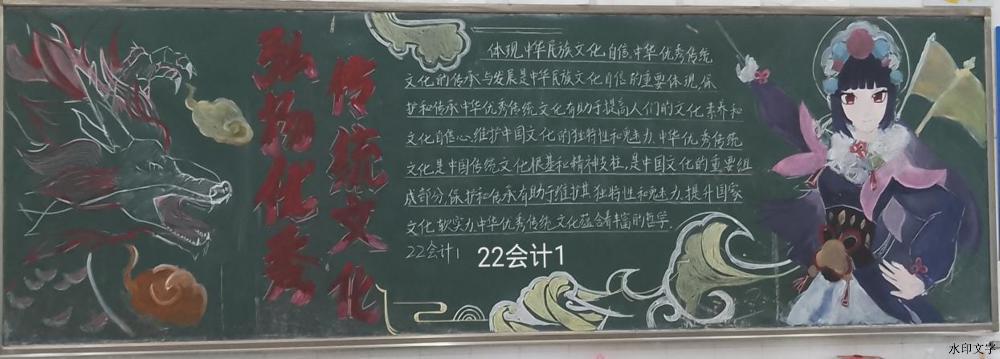 弘扬化
传统文化
体现.中华民族文化自信.中华优秀传统
文化的传承与发展是中华民族文化自信的重要体现.保
护和传承中华优秀传统文化有助于提高人们的文化素养和
文化自信心.维护中国文化的独特性和魅力.中华优秀传统
文化是中国传统文化根基和精神支柱.是中国文化的重要组
成部分.保护和传承有助于维护其独特性和魅力.提升国家
文化软实力.中华优秀传统文化蕴含着丰富的哲学.
22会计1
22会计1
水印文字